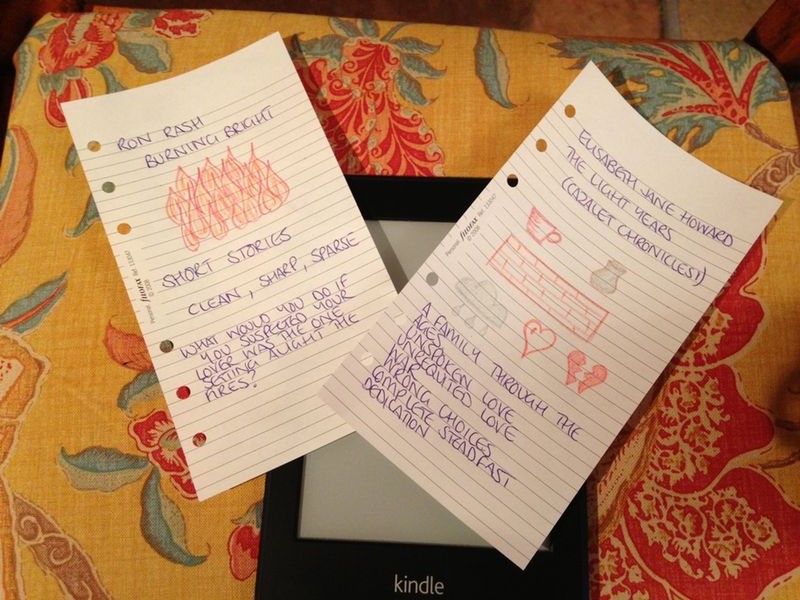 RON RASH
BURNING BRIGHT
SHORT STORIES
CLEAN, SHARP, SPARSE
WHAT WOULD YOU DO IF
YOU SUSPECTED YOUR
LOVER WAS THE ONE
SETTING ALIGHT THE
FIRES?
Personal filofax Ref. 133047
© 2008
ELISABETH JANE HOWARD
THE LIGHT YEARS
(CAZALET CHRONICLES 1)
Personal filofax Ref. 133047
© 2008
A FAMILY THROUGH THE
AGES
UNSPOKEN LOVE
UNREQUITED LOVE
WAR
WRONG CHOICES
COMPLETE STEADFAST
DEDICATION
kindle